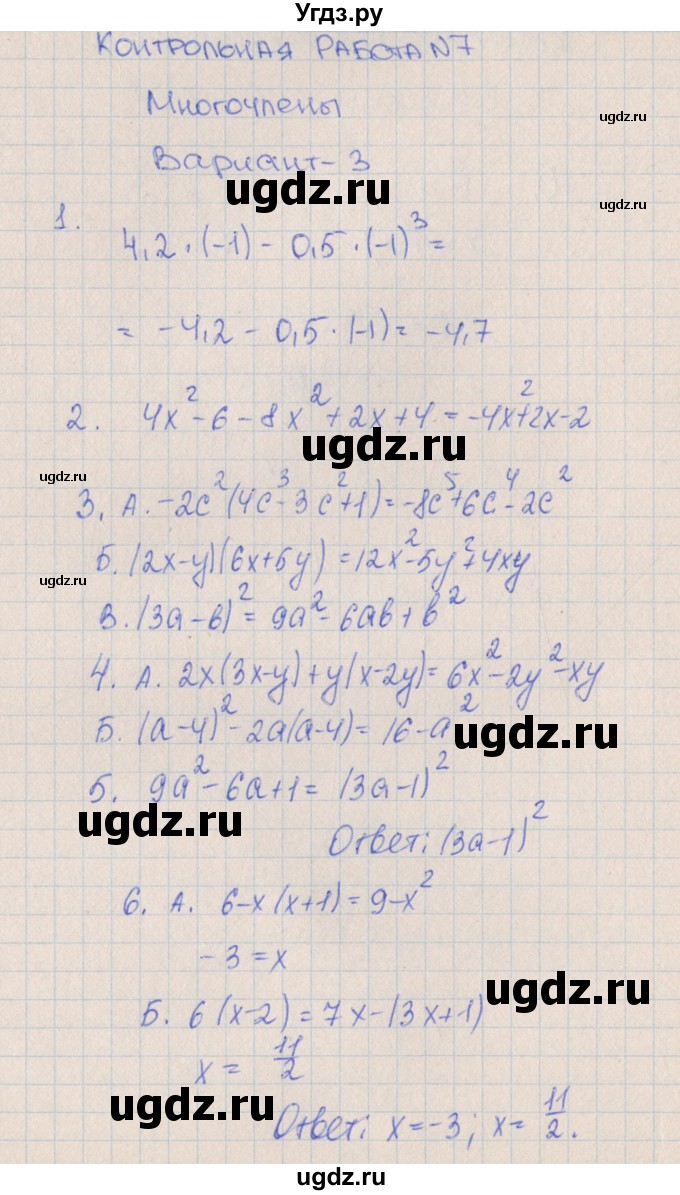 Угдз.ру
КОНТРОЛЬНАЯ РАБОТА N7
Многочлены
ugdz.ru
Вариант-3
ugdz.ru
ugdz.ru
1.
4,2·(-1) - 0,5·(-1)³=
= -4,2 - 0,5·(-1)= -4,7
2. 4x²-6-8x²+2x+4=-4x²+2x-2
ugdz.ru
ugdz.ru
3. А. -2c²(4c³-3c²+1)=-8c⁵+6c⁴-2c²
Б. (2x-y)(6x+5y)=12x²-5y²+4xy
ugdz.ru
В. (3a-b)²=9a²-6ab+b²
4. А. 2x(3x-y)+y(x-2y)=6x²-2y²-xy
Б. (a-4)²-2a(a-4)=16-a²
ugdz.ru
5. 9a²-6a+1=(3a-1)²
ugdz.ru
Ответ: (3a-1)²
6. А. 6-x(x+1)=9-x²
-3=x
ugdz.ru
Б. 6(x-2)=7x-(3x+1)
x= 11/2
ugdz.ru
Ответ: x=-3; x= 11/2.
ugdz.ru
ugdz.ru